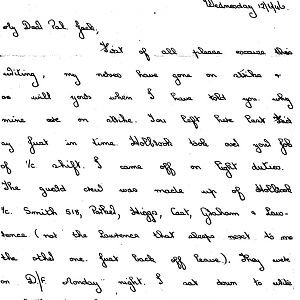 Wednesday 17/4/46.
My Dear Pal Jack,
First of all please excuse this
writing, my nerves have gone on strike &
so will yours when I have told you why
mine are on strike. You left here Park Hid
ay just in time. Holbrook took over your job
of i/c shift. I came off on light duties.
The guard crew was made up of Holbrook
i/c. Smith 518, Parker, Higgs, Cast, Graham & Law-
rence (not the Lawrence that sleeps next to me
the other one just back off leave). They were
on D/F Monday night. I sat down to write